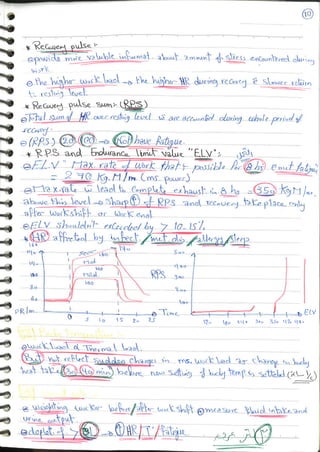 10
* Recovery pulse :-
provide more valuable informat. about amount of stress encountered during
work.
the higher work load → the higher HR during recovery & slower return
to resting level.
* Recovery pulse sum :- (RPS)
Total sum of HR over resting level is accounted during whole period of
recovery.
(RPS) 20 100 → Not have fatigue.
* RPS and Endurance limit value "ELV":-
ELV: Max. rate of work that possible for 8 hs e out fatigue
= 2 Kg.M/m (ms. power)
Max. rate lead to complete exhaust. in 8 hs = 350 Kg M/m,
above this level → sharp ↑ of RPS and recovery take place only
after work shift or work end.
ELV shouldn't exceeded by > 10.15%.
HR affected by infect / met. dis / allergy / sleep.
RPS
PR/m
0 5 10 15 20 25
Time
ELV
work load & Thermal load.
But not reflect sudden changes in ms. work load as change in body
heat take 30 40 min before new setting of body temp is settled
weighting worker before/after work shift measure fluid intake and
urine output.
deplet. of > → ↑ HR / T / fatigue